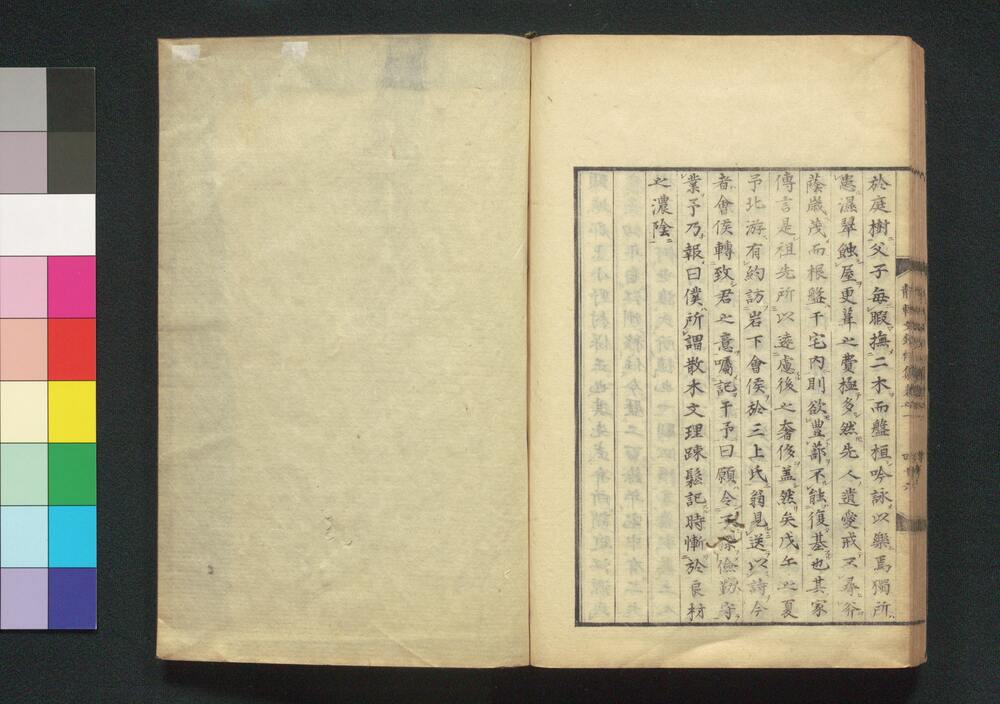 於庭樹父子毎暇撫二木而盤桓吟詠以樂焉獨所
患濕翠蝕屋更葺之費極多然先人遺愛戒不尋斧
蔭歳茂而根盤于宅内則欲豊蔀不能復基也其家
傳言是祖先所以遠慮後之奢侈盖然矣戊午之夏
予北游有約訪岩下會侯於三上氏翁見送以詩今
者會侯轉致君之意囑記于予曰願令 保儉勤守
業予乃報曰僕所謂散木文理踈鬆記時慚於良材
之濃陰